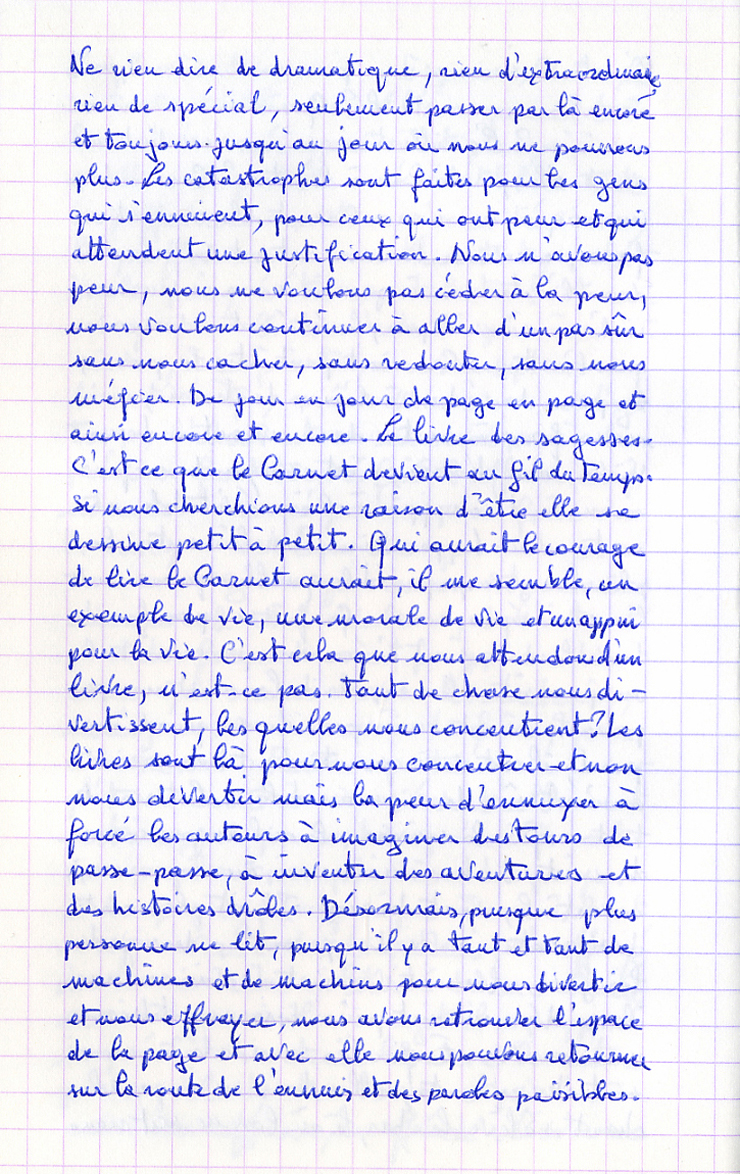 Ne rien dire de dramatique, rien d'extraordinaire
rien de spécial, seulement passer par là encore
et toujours jusqu'au jour où nous ne pourrons
plus. Les catastrophes sont faites pour les gens
qui s'ennuient, pour ceux qui ont peur et qui
attendent une justification. Nous n'avons pas
peur, nous ne voulons pas céder à la peur,
nous voulons continuer à aller d'un pas sûr
sans nous cacher, sans redouter, sans nous
méfier. De jour en jour de page en page et
ainsi encore et encore. Le livre des sagesses.
C'est ce que le Carnet devient au fil du temps.
Si nous cherchions une raison d'être elle se
dessine petit à petit. Qui aurait le courage
de lire le Carnet aurait, il me semble, un
exemple de vie, une morale de vie et un appui
pour la vie. C'est cela que nous attendons d'un
livre, n'est-ce pas. Tant de chose nous di-
vertissent, lesquelles nous concentrent? Les
livres sont là pour nous concentrer et non
nous divertir mais la peur d'ennuyer à
forcé les auteurs à imaginer des tours de
passe-passe, à inventer des aventures et
des histoires drôles. Désormais, puisque plus
personne ne lit, puisqu'il y a tant et tant de
machines et de machins pour nous divertir
et nous effrayer, nous avons retrouver l'espace
de la page et avec elle nous pouvons retourner
sur la route de l'ennuis et des paroles paisibles.